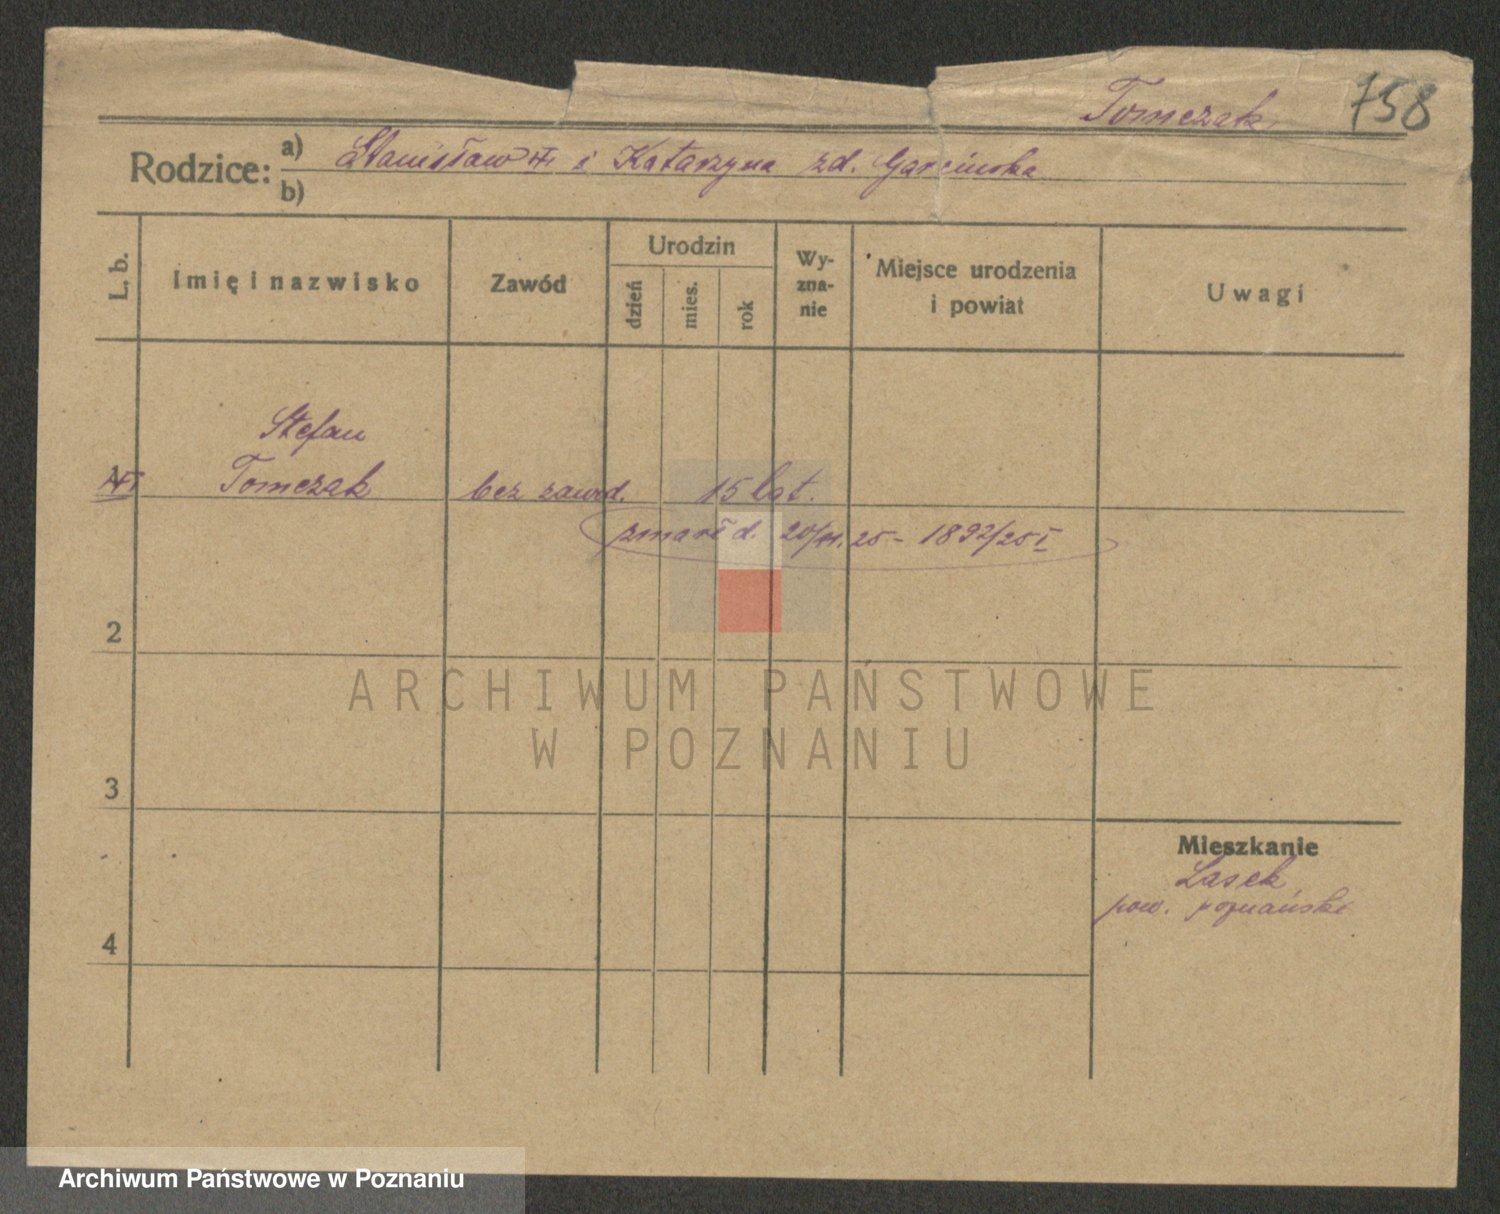 Tomczak 758
Rodzice: a) Stanisław i Katarzyna zd. Garcinska
b)
L. b. Imię i nazwisko Zawód Urodzin dzień mies. rok Wy-zna-nie Miejsce urodzenia i powiat Uwagi
Stefan
1 Tomczak bez zawod. 15 lat.
zmarł d. 20/11.25 - 1892/25 I
2
ARCHIWUM PAŃSTWOWE
W POZNANIU
3
Mieszkanie
Lasek
pow. poznański
4
Archiwum Państwowe w Poznaniu